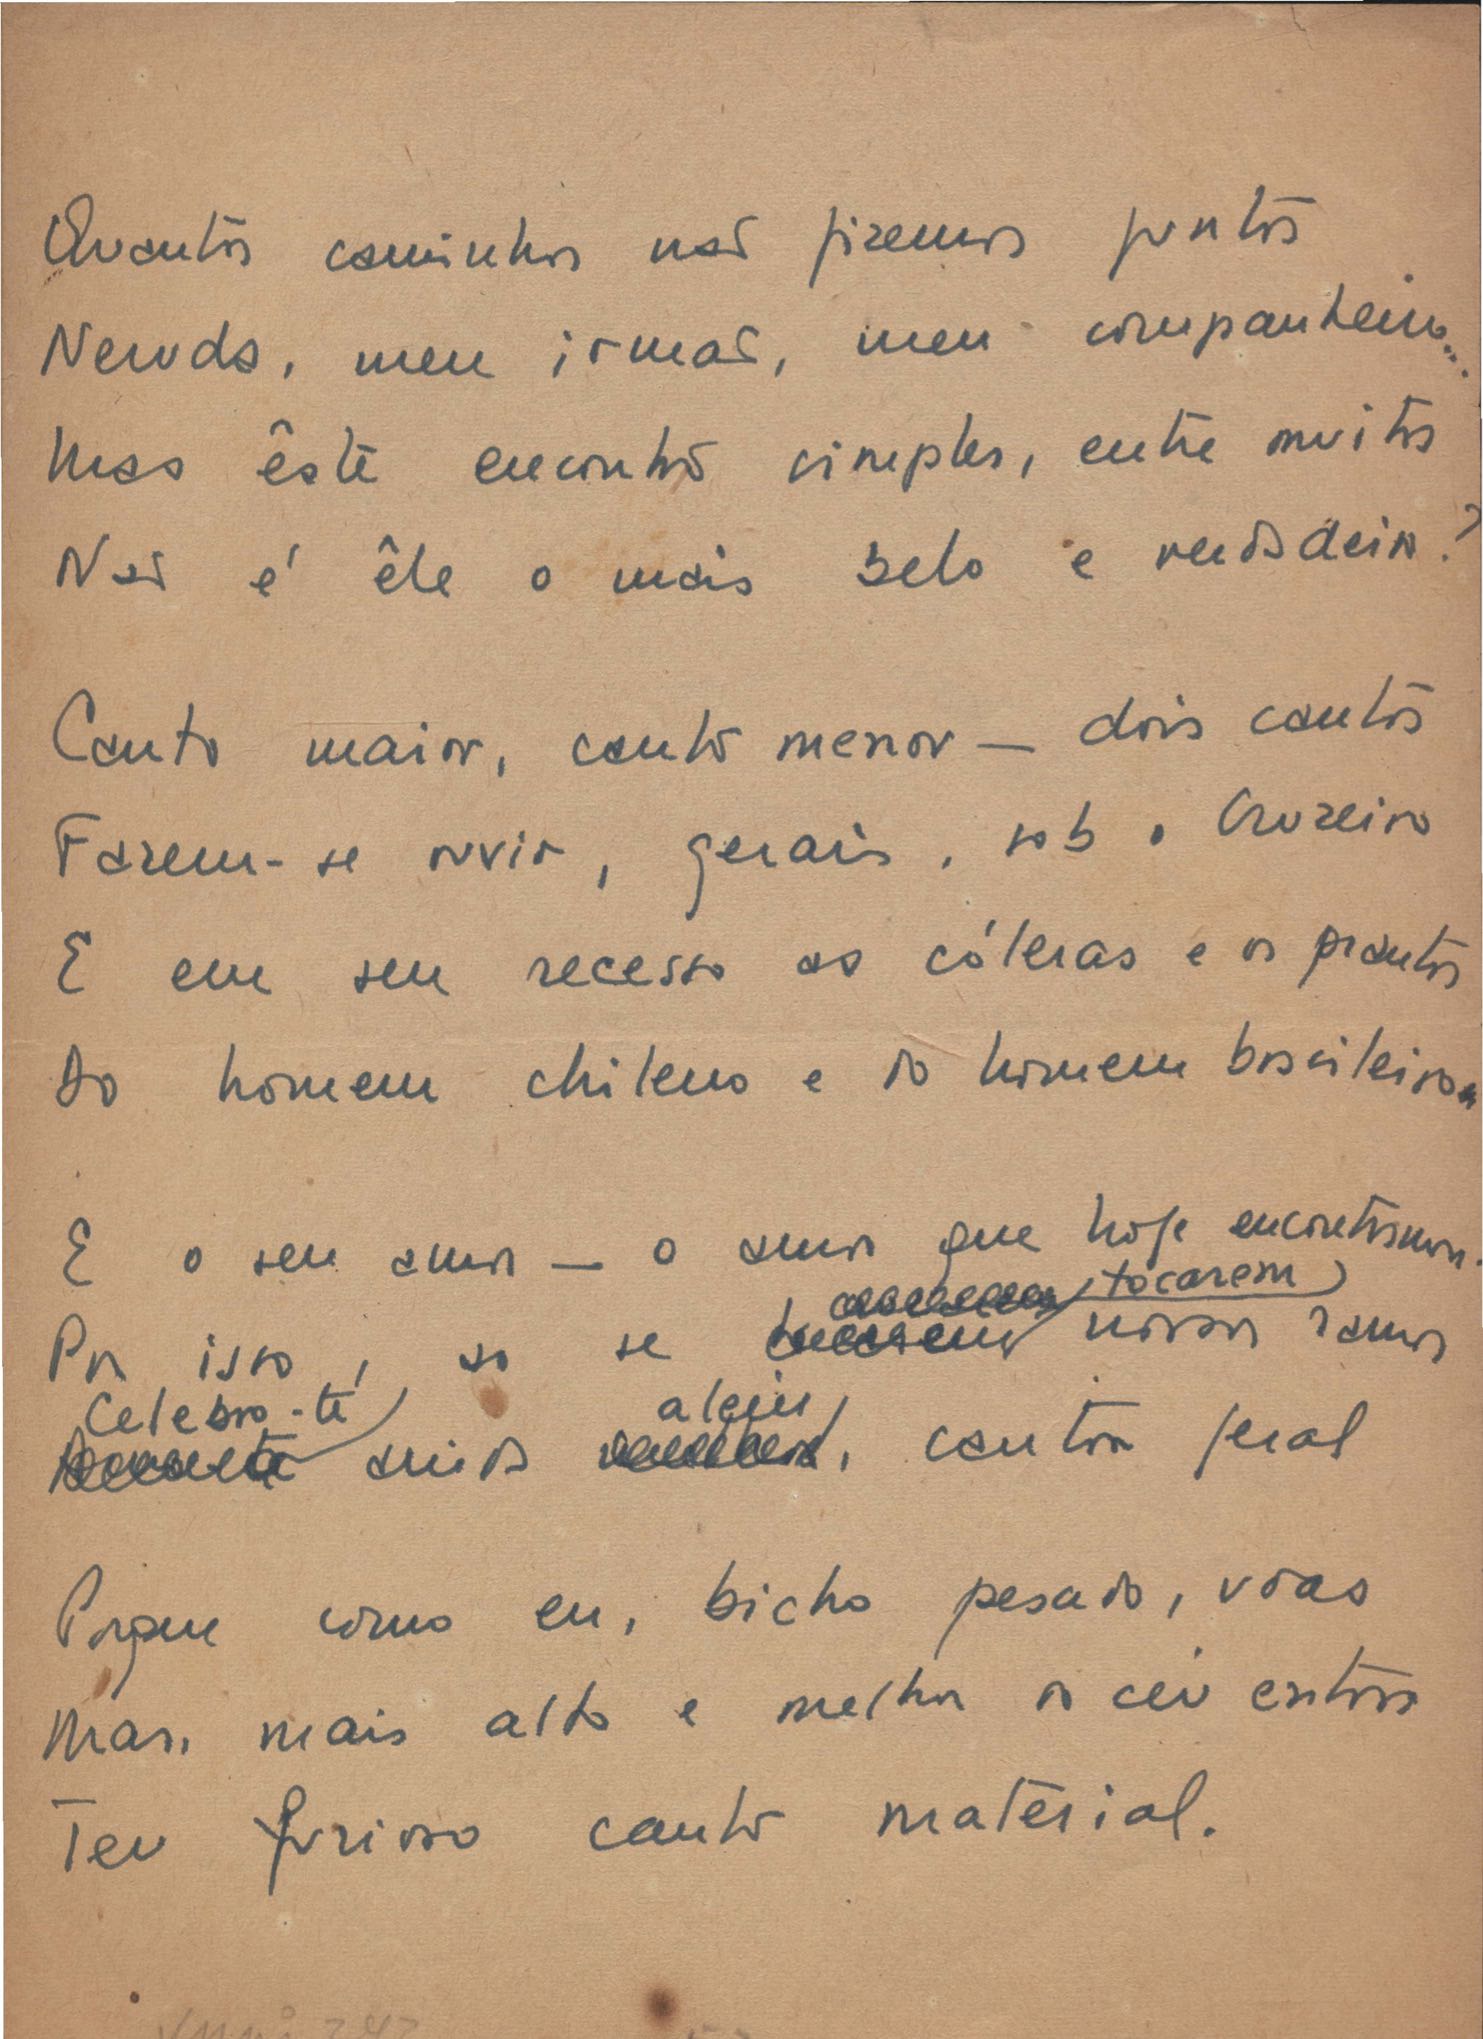 Quantos caminhos não fizemos juntos
Neruda, meu irmão, meu companheiro...
Mas êste encontro simples, entre muitos
Não é êle o mais belo e verdadeiro?
Canto maior, canto menor — dois cantos
Fazem-se ouvir, gerais, sob o Cruzeiro
E em seu recesso as cóleras e os prantos
Do homem chileno e do homem brasileiro
E o seu amor — o amor que hoje encontramos.
tocarem
Por isso, ao se nossos ramos
Celebro-te alem,
ainda , cantor geral
Porque como eu, bicho pesado, voas
Mas, mais alto e melhor o céu entoas
Teu furioso canto material.